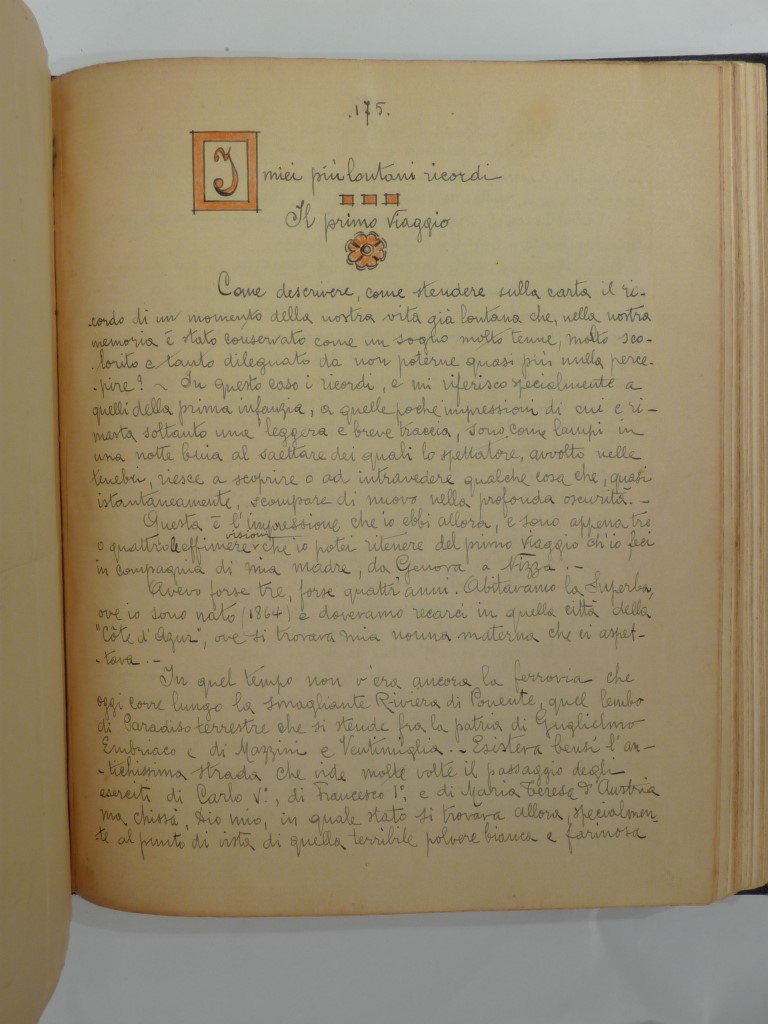 .175.
I miei più lontani ricordi
Il primo viaggio
Come descrivere, come stendere sulla carta il ri-
-cordo di un momento della nostra vita già lontana che, nella nostra
memoria è stato conservato come un sogno molto tenue, molto sco-
-lorito e tanto dileguato da non poterne quasi più nulla perce-
-pire? ~ In questo caso i ricordi, e mi riferisco specialmente a
quelli della prima infanzia, a quelle poche impressioni di cui è ri-
-masta soltanto una leggera e breve traccia, sono come lampi in
una notte buia al saettare dei quali lo spettatore, avvolto nelle
tenebri, riesce a scoprire o ad intravedere qualche cosa che, quasi
istantaneamente, scompare di nuovo nella profonda oscurità. -
Questa è l'impressione che io ebbi allora, e sono appena tre
o quattro le effimere visioni che io potei ritenere del primo viaggio ch'io feci
in compagnia di mia madre, da Genova a Nizza. -
Avevo forse tre, forse quattr'anni. Abitavamo la Superba,
ove io sono nato (1864) e dovevamo recarci in quella città della
"Côte d'Azur", ove si trovava mia nonna materna che ci aspet-
-tava. -
In quel tempo non v'era ancora la ferrovia che
oggi corre lungo la smagliante Riviera di Ponente, quel lembo
di Paradiso terrestre che si stende fra la patria di Guglielmo
Embriaco e di Mazzini e Ventimiglia. - Esisteva bensì l'an-
-tichissima strada che vide molte volte il passaggio degli
eserciti di Carlo V°, di Francesco I° e di Maria Teresa d'Austria
ma chissà, Dio mio, in quale stato si trovava allora, specialmen-
-te al punto di vista di quella terribile polvere bianca e farinosa